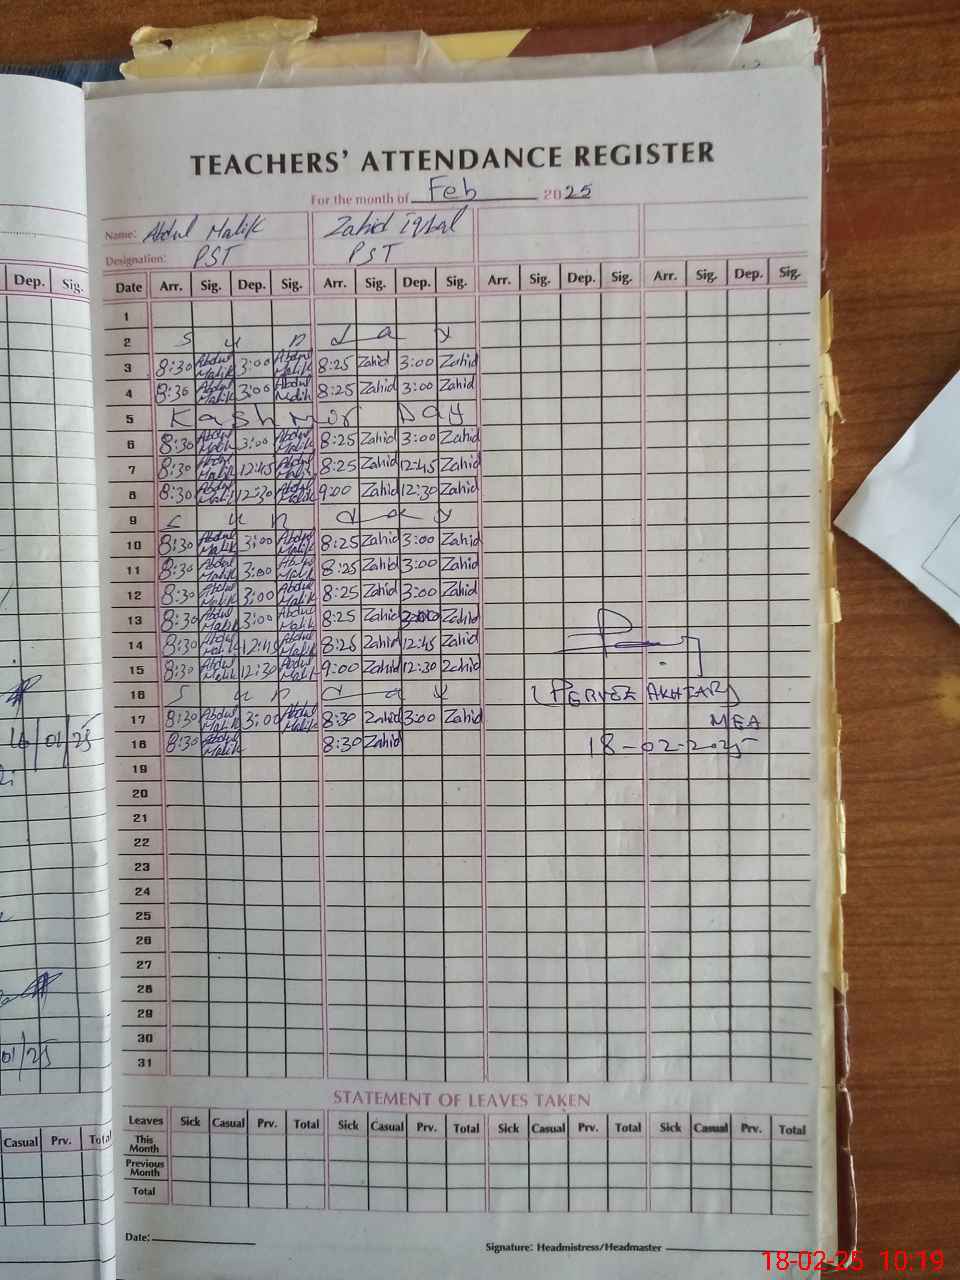 TEACHERS' ATTENDANCE REGISTER
For the month of Feb 2025
Name: Abdul Malik Zahid Iqbal
Designation: PST PST
Dep. Sig. Date Arr. Sig. Dep. Sig. Arr. Sig. Dep. Sig. Arr. Sig. Dep. Sig. Arr. Sig. Dep. Sig.
1
2 S u n d a y
3 8:30 Abdul Malik 3:00 Abdul Malik 8:25 Zahid 3:00 Zahid
4 8:30 Abdul Malik 3:00 Abdul Malik 8:25 Zahid 3:00 Zahid
5 Kashmor Day
6 8:30 Abdul Malik 3:00 Abdul Malik 8:25 Zahid 3:00 Zahid
7 8:30 Abdul Malik 12:45 Abdul Malik 8:25 Zahid 12:45 Zahid
8 8:30 Abdul Malik 12:30 Abdul Malik 9:00 Zahid 12:30 Zahid
9 S u n d a y
10 8:30 Abdul Malik 3:00 Abdul Malik 8:25 Zahid 3:00 Zahid
11 8:30 Abdul Malik 3:00 Abdul Malik 8:25 Zahid 3:00 Zahid
12 8:30 Abdul Malik 3:00 Abdul Malik 8:25 Zahid 3:00 Zahid
13 8:30 Abdul Malik 3:00 Abdul Malik 8:25 Zahid 3:00 Zahid
14 8:30 Abdul Malik 12:45 Abdul Malik 8:25 Zahid 12:45 Zahid
15 8:30 Abdul Malik 12:30 Abdul Malik 9:00 Zahid 12:30 Zahid
16 S u n d a y (PERVEZ AKHTAR)
17 8:30 Abdul Malik 3:00 Abdul Malik 8:30 Zahid 3:00 Zahid MEA
18 8:30 Abdul Malik 8:30 Zahid 18-02-2025
19
20
21
22
23
24
25
26
27
28
29
30
31
16/01/25
01/25
STATEMENT OF LEAVES TAKEN
Casual Prv. Total Leaves Sick Casual Prv. Total Sick Casual Prv. Total Sick Casual Prv. Total Sick Casual Prv. Total
This Month
Previous Month
Total
Date: Signature: Headmistress/Headmaster
18-02-25 10:19